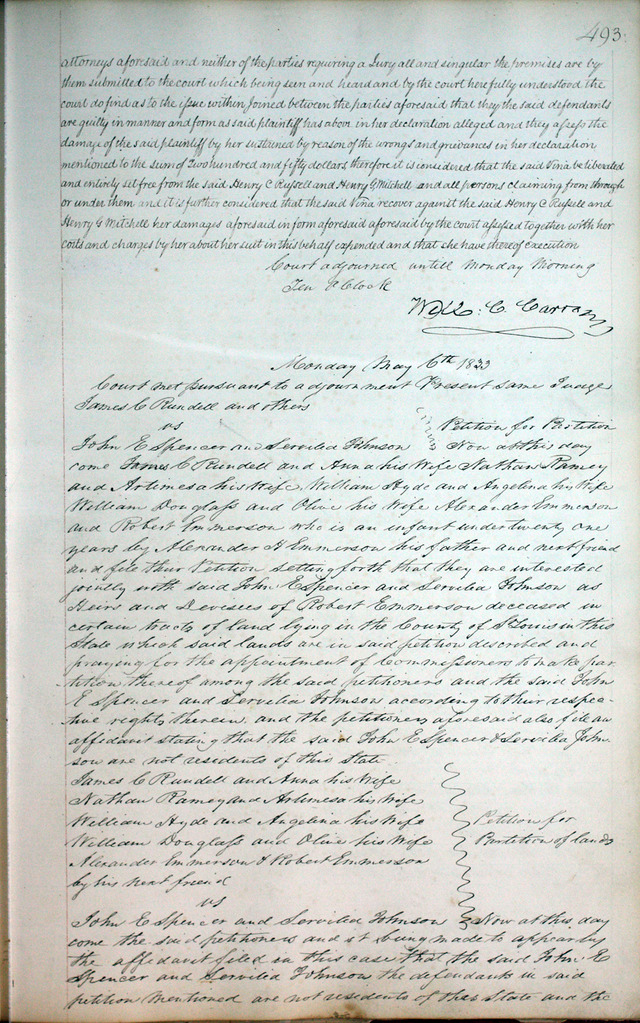 493
attorneys aforesaid and neither of the parties requiring a Jury all and singular the premises are by
them submitted to the court which being seen and heard and by the court here fully understood the
court do find as to the issue within joined between the parties aforesaid that they the said defendants
are guilty in manner and form as said plaintiff has above in her declaration alleged and they assess the
damage of the said plaintiff by her sustained by reason of the wrongs and grievances in her declaration
mentioned to the sum of Two hundred and fifty dollars therefore it is considered that the said Vina be liberated
and entirely set free from the said Henry C Russell and Henry G Mitchell and all persons claiming from through
or under them and it is further considered that the said Vina recover against the said Henry C Russell and
Henry G Mitchell her damages aforesaid in form aforesaid aforesaid by the court assessed together with her
costs and charges by her about her suit in this behalf expended and that she have thereof execution
Court adjourned untill Monday Morning
Ten O Clock
Will: C. Carr
Monday May 6th 1833
Court met pursuant to adjournment Present same Judge
James C Rundell and others
vs
Petition for Partition
John E Spencer and Servilia Johnson Now at this day
come James C Rundell and Anna his Wife Nathan Ramey
and Artimesa his Wife William Hyde and Angelina his Wife
William Douglass and Olive his Wife Alexander Emmerson
and Robert Emmerson who is an infant under twenty one
years by Alexander H Emmerson his father and next friend
and file their Petition setting forth that they are interested
jointly with said John E Spencer and Servilia Johnson as
Heirs and Devisees of Robert Emmerson deceased in
certain tracts of land lying in the County of St Louis in this
State which said lands are in said petition described and
praying for the appointment of Commissioners to make par
tition thereof among the said petitioners and the said John
E Spencer and Servilia Johnson according to their respec-
tive rights therein and the petitioners aforesaid also file an
affidavit stating that the said John E Spencer & Servilia John
son are not residents of this State
James C Rundell and Anna his Wife
Nathan Ramey and Artimesa his Wife
William Hyde and Angelina his Wife
William Douglass and Olive his Wife
Alexander Emmerson & Robert Emmerson
by his next friend
Petition for
Partition of lands
vs
John E Spencer and Servilia Johnson Now at this day
come the said petitioners and it being made to appear by
the affidavit filed in this case that the said John E
Spencer and Servilia Johnson the defendants in said
petition mentioned are not residents of this State and the